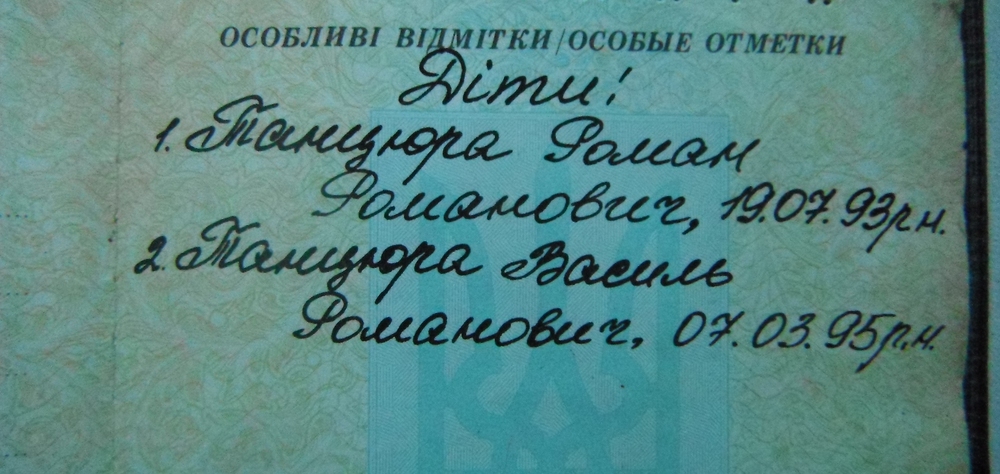 ОСОБЛИВІ ВІДМІТКИ/ОСОБЫЕ ОТМЕТКИ
Діти!
1. Танцюра Роман
Романович, 19.07.93р.н.
2. Танцюра Василь
Романович, 07.03.95р.н.